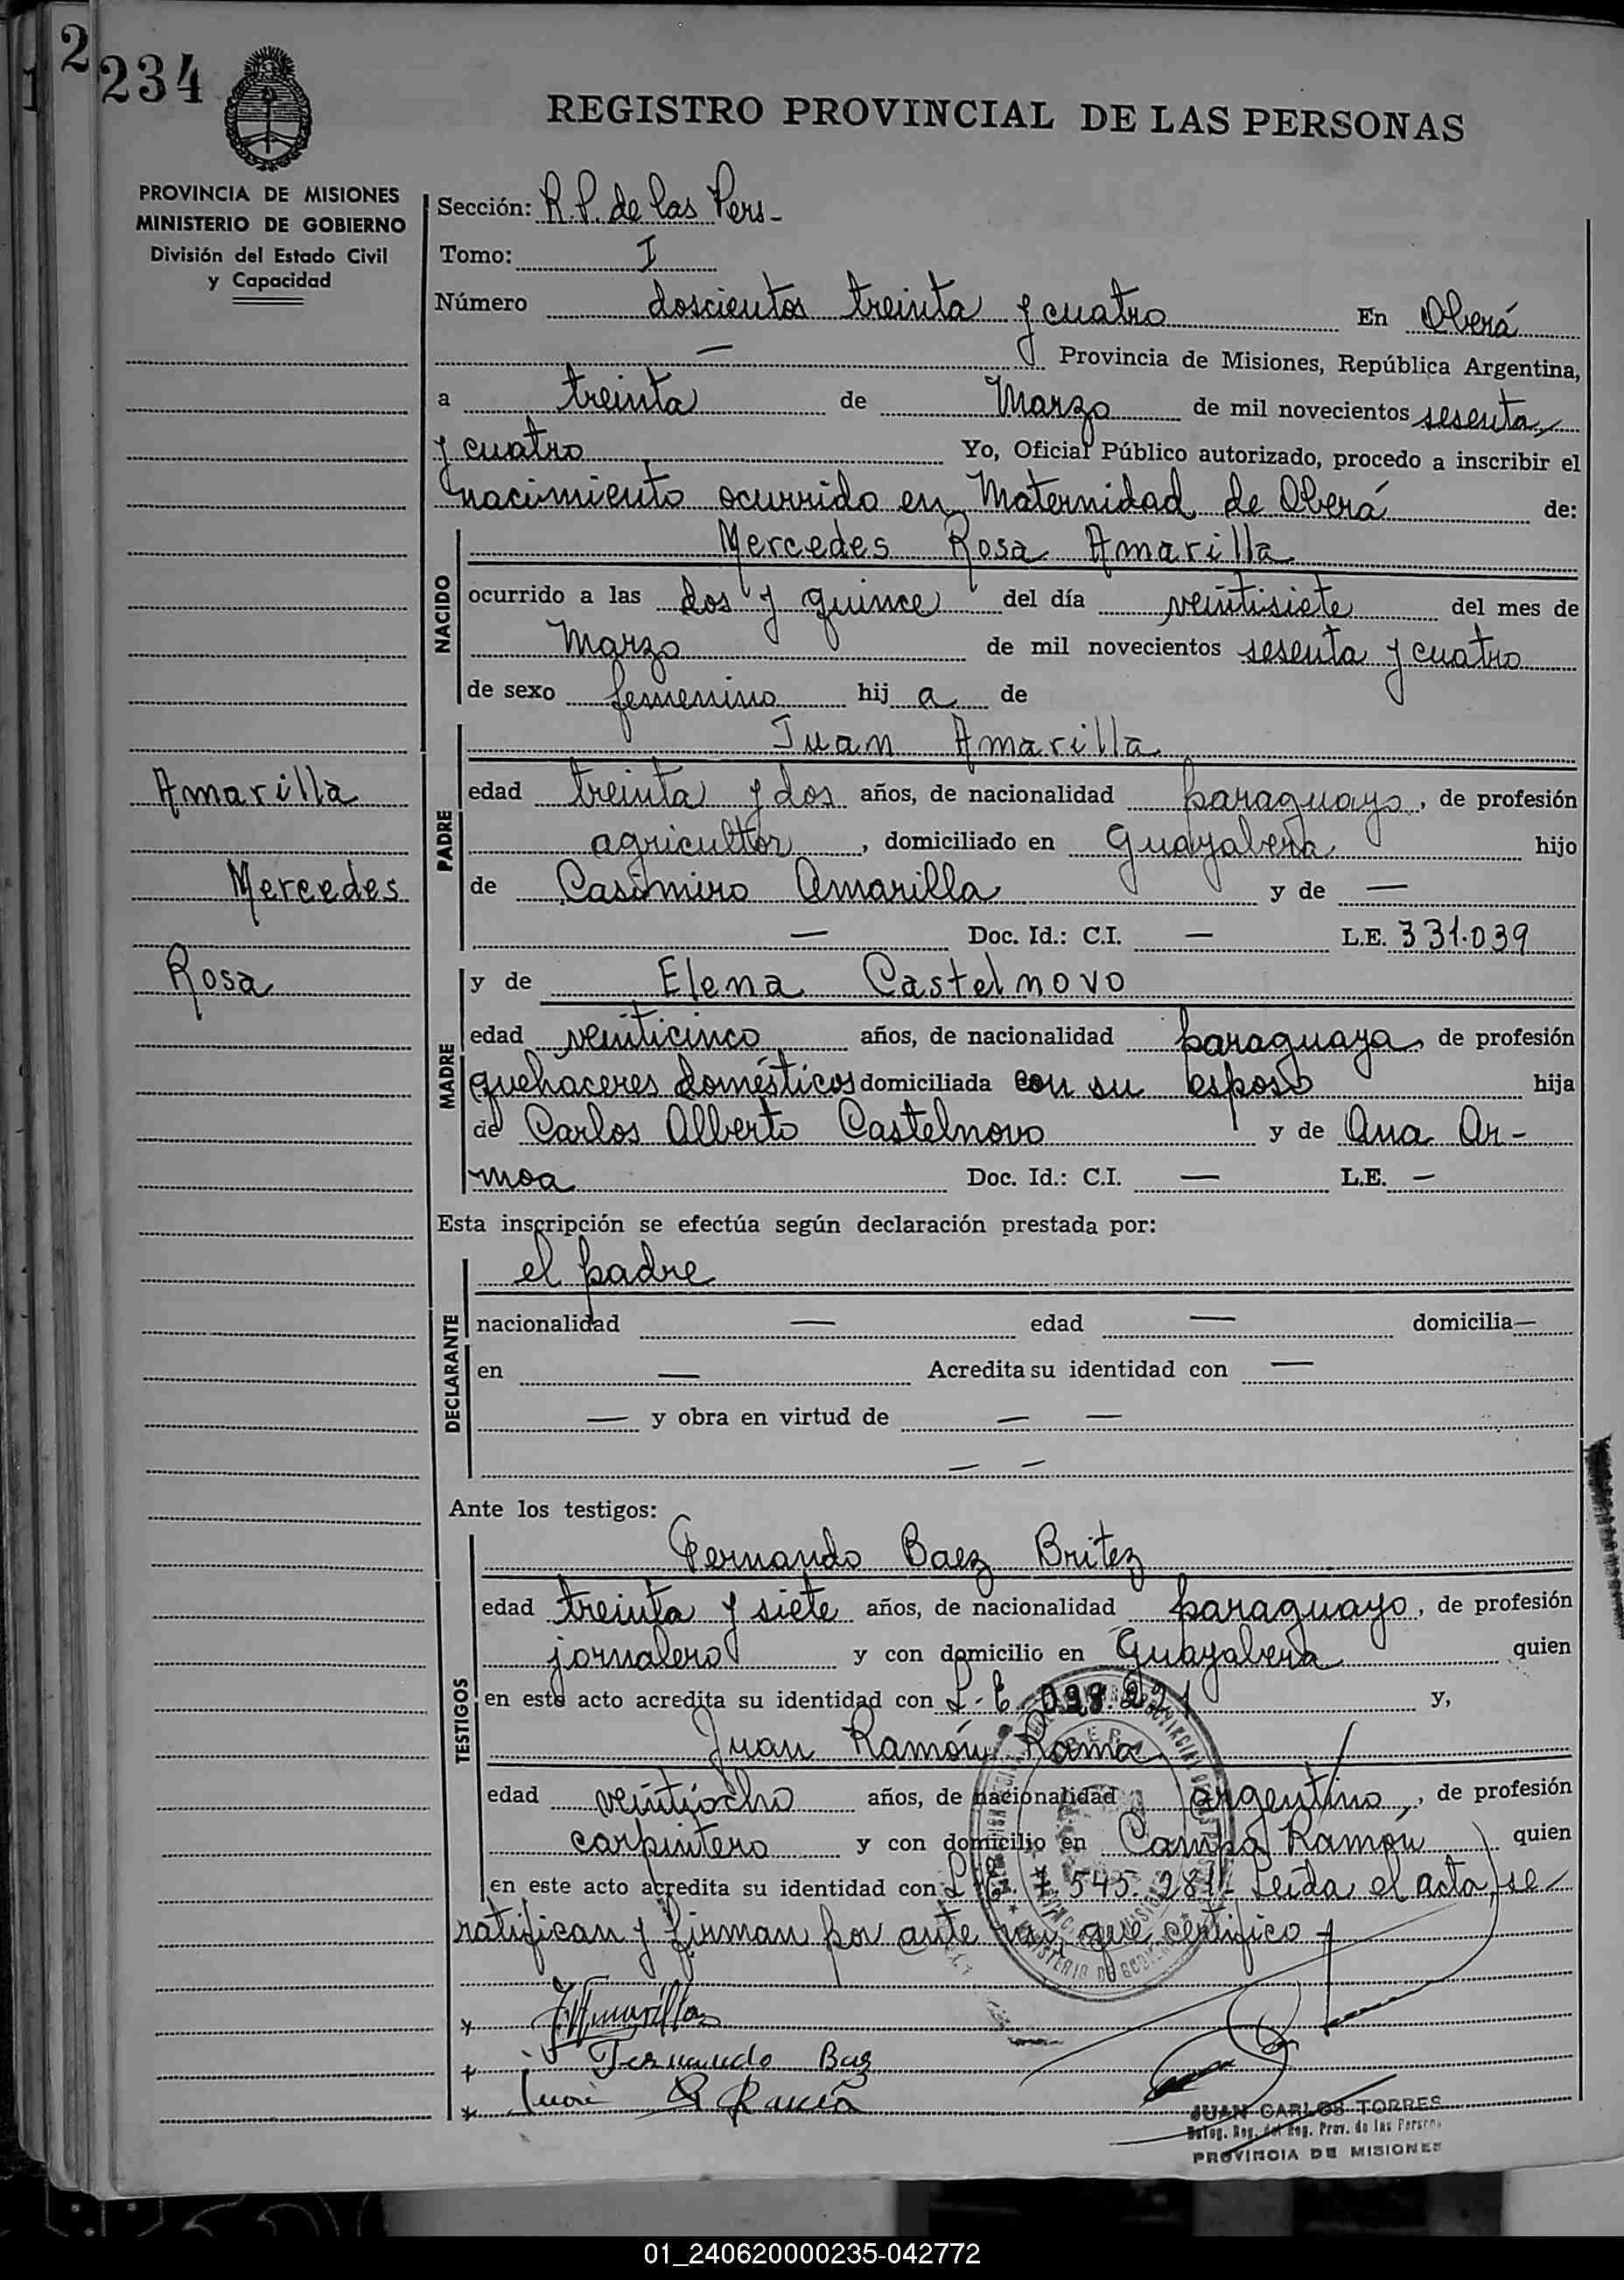 2
234
REGISTRO PROVINCIAL DE LAS PERSONAS
PROVINCIA DE MISIONES
MINISTERIO DE GOBIERNO
División del Estado Civil
y Capacidad
Sección: R.P. de las Pers-
Tomo: I
Número doscientos treinta y cuatro En Oberá
— Provincia de Misiones, República Argentina,
a treinta de Marzo de mil novecientos sesenta
y cuatro Yo, Oficial Público autorizado, procedo a inscribir el
nacimiento ocurrido en Maternidad de Oberá de:
NACIDO
Mercedes Rosa Amarilla
ocurrido a las dos y quince del día veintisiete del mes de
Marzo de mil novecientos sesenta y cuatro
de sexo femenino hij a de
PADRE
Juan Amarilla
edad treinta y dos años, de nacionalidad paraguayo, de profesión
agricultor, domiciliado en Guayabera hijo
de Casimiro Amarilla y de —
— Doc. Id.: C.I. — L.E. 331.039
Amarilla
Mercedes
Rosa
MADRE
y de Elena Castelnovo
edad veinticinco años, de nacionalidad paraguaya, de profesión
quehaceres domésticos domiciliada con su esposo hija
de Carlos Alberto Castelnovo y de Ana Ar-
moa Doc. Id.: C.I. — L.E. —
Esta inscripción se efectúa según declaración prestada por:
DECLARANTE
el padre
nacionalidad — edad — domicilia—
en — Acredita su identidad con —
— y obra en virtud de — —
— —
Ante los testigos:
TESTIGOS
Fernando Baez Britez
edad treinta y siete años, de nacionalidad paraguayo, de profesión
jornalero y con domicilio en Guayabera quien
en este acto acredita su identidad con L.E. y,
Juan Ramón Rama
edad veintiocho años, de nacionalidad argentino, de profesión
carpintero y con domicilio en Campo Ramón quien
en este acto acredita su identidad con L.E. 7.545.281- Leida el acta, se
ratifican y firman por ante mi, que certifico
J Amarilla
Fernando Baz
JUAN CARLOS TORRES
Deleg. Reg. del Reg. Prov. de las Person.
PROVINCIA DE MISIONES
01_240620000235-042772